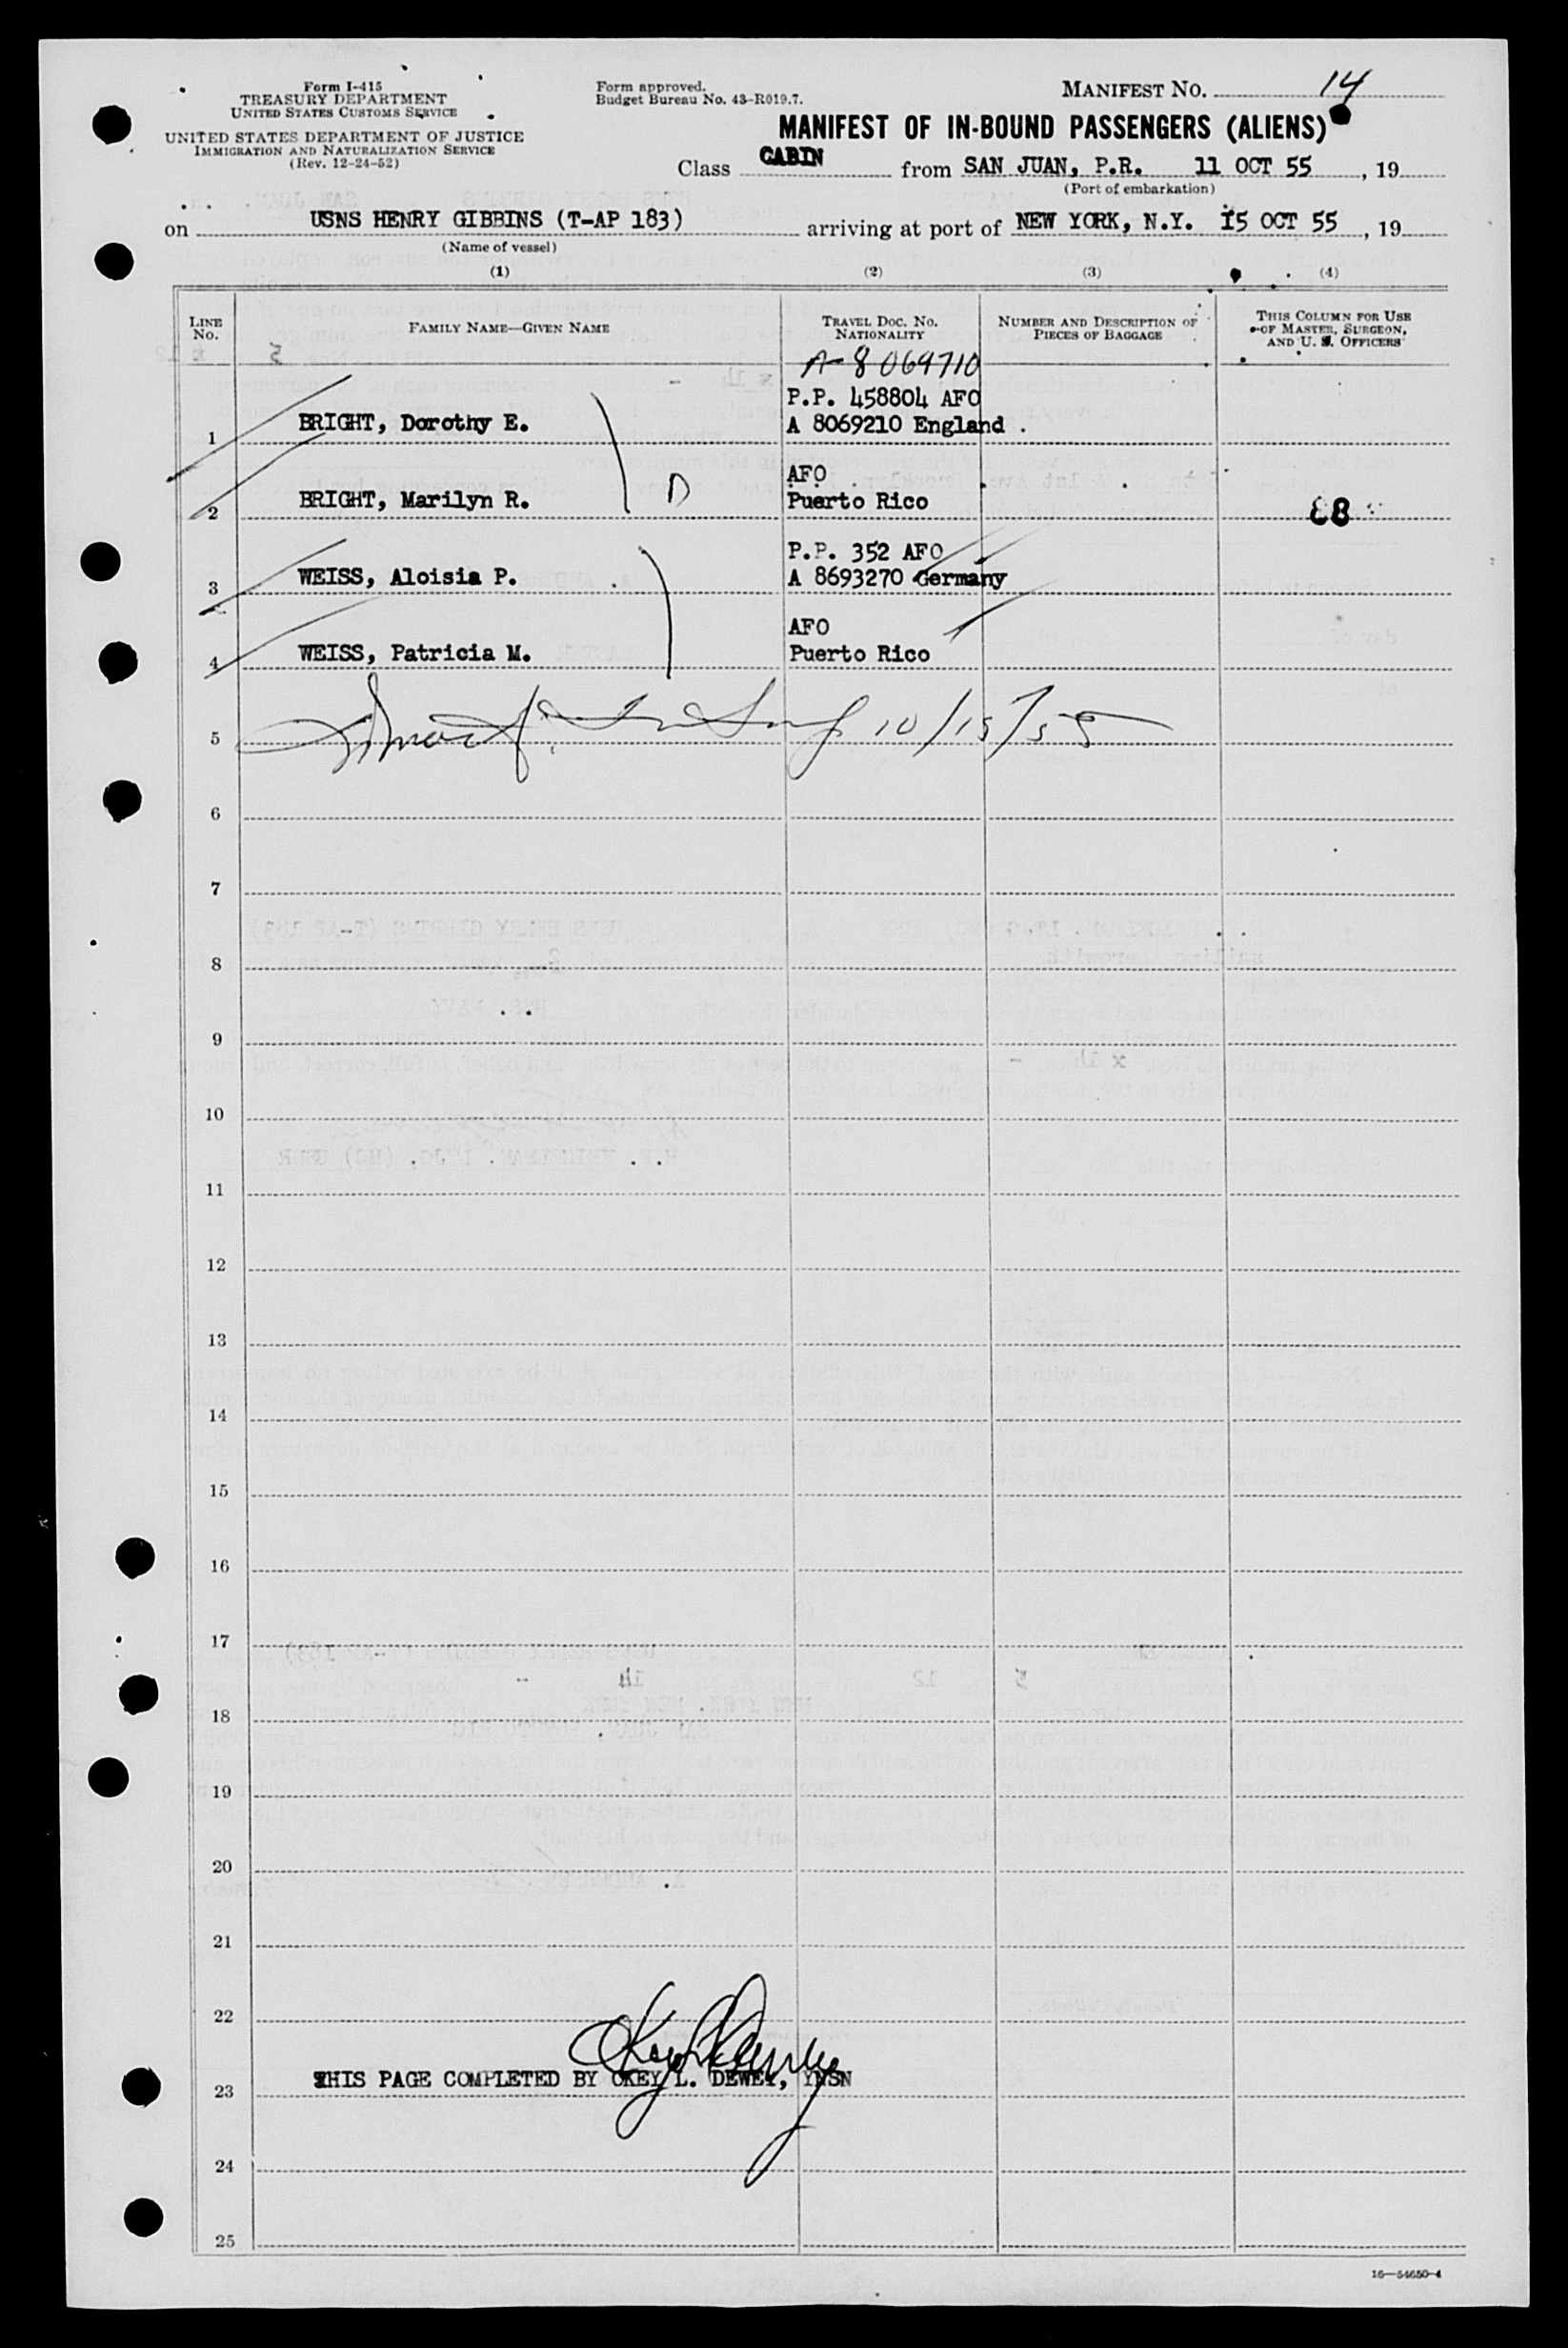 Form I-415
TREASURY DEPARTMENT
UNITED STATES CUSTOMS SERVICE
UNITED STATES DEPARTMENT OF JUSTICE
IMMIGRATION AND NATURALIZATION SERVICE
(Rev. 12-24-52)
Form approved.
Budget Bureau No. 43-R019.7.
MANIFEST NO. 14
MANIFEST OF IN-BOUND PASSENGERS (ALIENS)
Class CABIN from SAN JUAN, P.R. 11 OCT 55, 19
(Port of embarkation)
on USNS HENRY GIBBINS (T-AP 183) arriving at port of NEW YORK, N.Y. 15 OCT 55, 19
(Name of vessel)
(1) (2) (3) (4)
LINE No. FAMILY NAME—GIVEN NAME TRAVEL DOC. NO. NATIONALITY NUMBER AND DESCRIPTION OF PIECES OF BAGGAGE THIS COLUMN FOR USE OF MASTER, SURGEON, AND U. S. OFFICERS
A-8 069710
P.P. 458804 AFO
1 BRIGHT, Dorothy E. A 8069210 England .
AFO
2 BRIGHT, Marilyn R. D Puerto Rico
P.P. 352 AFO
3 WEISS, Aloisia P. A 8693270 Germany
AFO
4 WEISS, Patricia M. Puerto Rico
5 10/15/55
6
7
8
9
10
11
12
13
14
15
16
17
18
19
20
21
22
23 THIS PAGE COMPLETED BY OKEY L. DEWEY, YNSN
24
25
16—54650-4